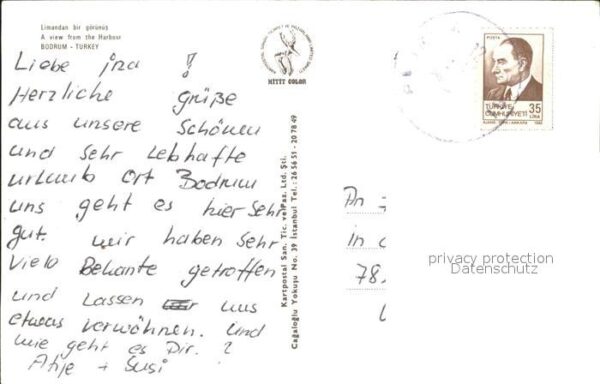 Limandan bir görünüş
A view from the Harbour
BODRUM - TURKEY
Liebe ina !
Herzliche grüße
aus unsere Schönen
und sehr lebhafte
urlaub ort Bodrum
uns geht es hier sehr
gut. wir haben sehr
viele Bekante getroffen
und Lassen uns
etwas verwöhnen. und
wie geht es Dir. ?
Atije + Susi
HITIT COLOR
Kartpostal San. Tic. ve Paz. Ltd. Şti.
Cağaloğlu Yokuşu No. 39 İstanbul Tel.: 26 56 51 - 20 78 49
POSTA
TÜRKİYE
CUMHURİYETİ
35
LİRA
An
in
78.
privacy protection
Datenschutz